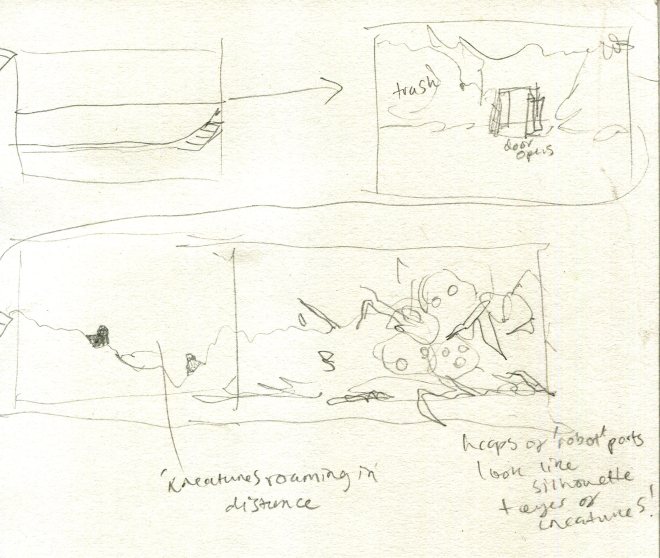 trash
door
opens
'Kreatures roaming in'
distance
heaps of 'robot' parts
look like
silhouette
+ eyes of
creatures!